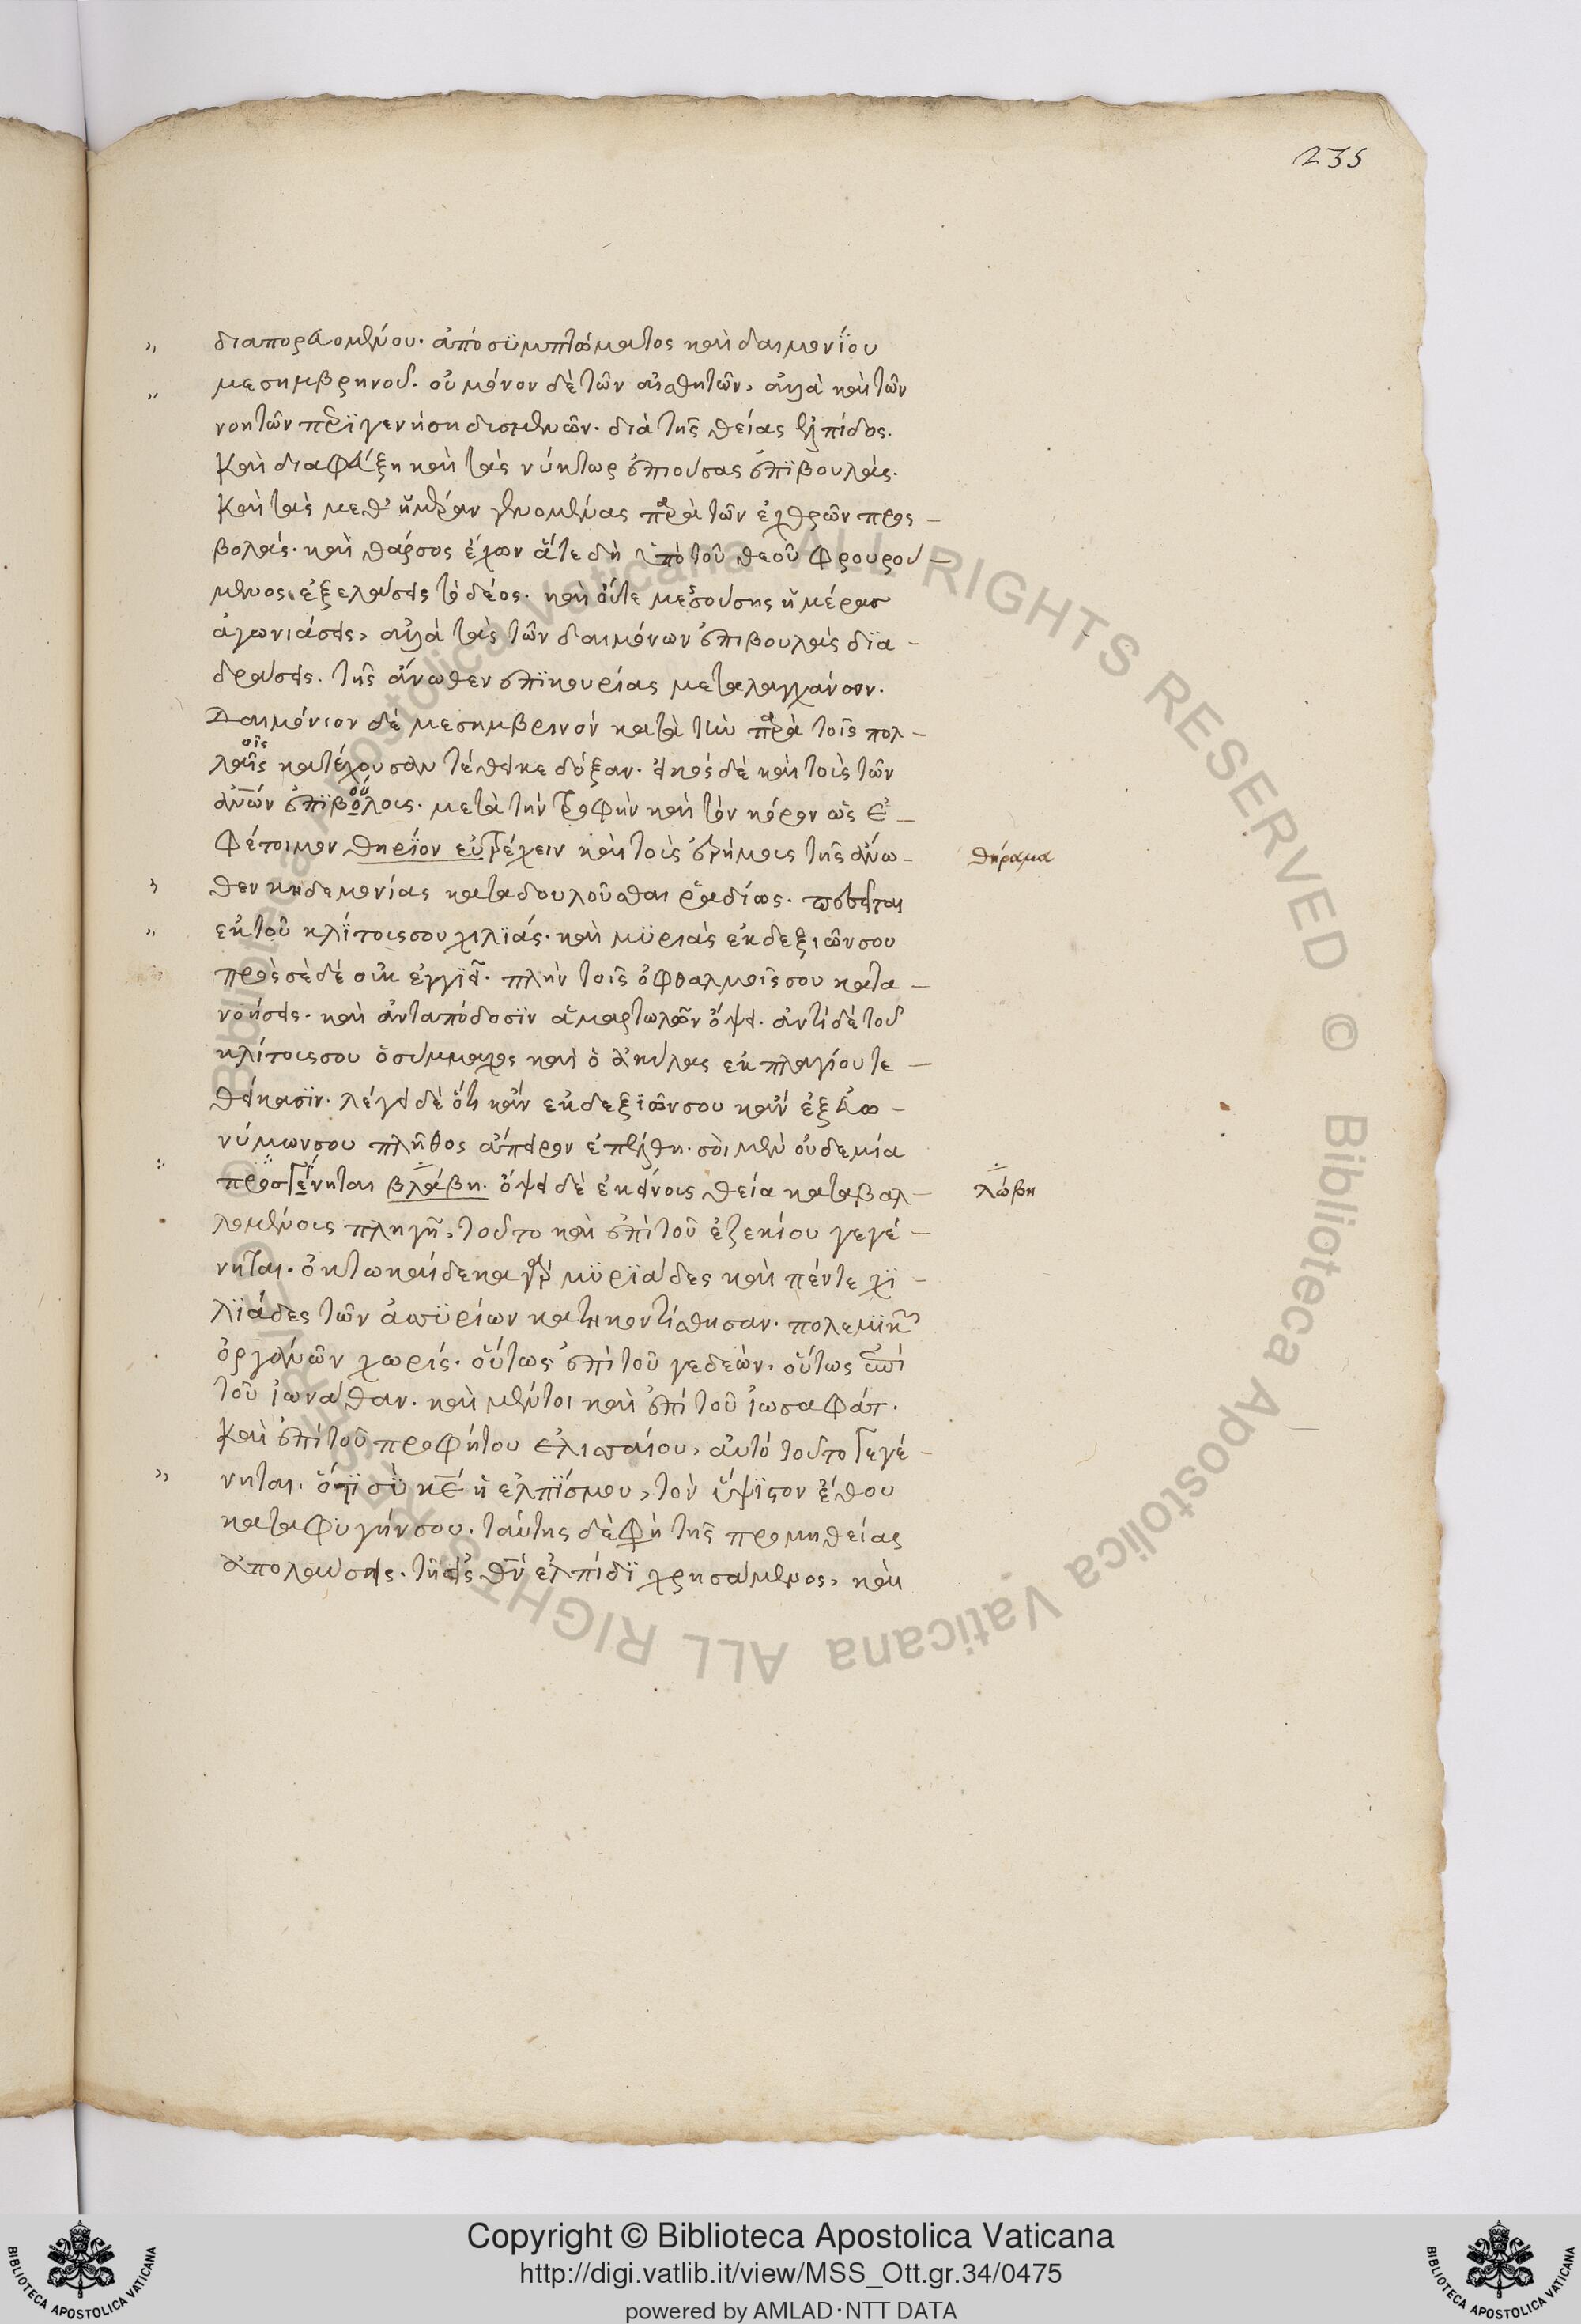 235
διαπορευομένου. ἀπὸ συμπτώματος καὶ δαιμονίου
μεσημβρηνοῦ. οὐ μόνον δὲ τῶν αἰσθητῶν, ἀλλὰ καὶ τῶν
νοητῶν περιγενήση δυσμενῶν. διὰ τῆς θείας ἐλπίδος.
Καὶ διαφεύξη καὶ τὰς νύκτωρ ἐπιούσας ἐπϊβουλάς.
Καὶ τὰς μεθ' ἡμέραν γενομένας παρὰ τῶν ἐχθρῶν προς –
βολάς. καὶ θάρσος ἔχων ἅτε δὴ ὑπὸ τοῦ θεοῦ φρουρού –
μενος, ἐξελάσεις τὸ δέος. καὶ οὔτε μεσούσης ἡμέρας
ἀγωνιάσεις, ἀλλὰ τὰς τῶν δαιμόνων ἐπιβουλὰς δϊα –
δράσεις. τῆς ἄνωθεν ἐπϊκουρίας μεταλαγχάνων.
Δαιμόνιον δὲ μεσημβρινὸν κατὰ τὴν παρὰ τοῖς πολ –
λαῖς οῖς κατέχουσαν τέθεικε δόξαν. εἰκὸς δὲ καὶ τοὺς τῶν
ἀνων ἐπϊβόλοις ού. μετὰ τὴν τροφὴν καὶ τὸν κόρον ὡς ἐ –
φέτοιμον θηρίον εὐτρέχειν καὶ τοὺς ἐρήμοις τῆς ἄνω –
θηραμα
θεν κηδεμονίας καταδουλοῦσθαι ῥαδίως. πεσεῖται
ἐκ τοῦ κλϊτους σου χιλϊάς. καὶ μϋριὰς ἐκ δεξιῶν σου
πρὸς σὲ δὲ οὐκ ἐγγϊεῖ. πλὴν τοῖς ὀφθαλμοῖς σου κατα –
νοήσεις. καὶ ἀνταπόδοσϊν ἁμαρτωλῶν ὄψει. ἀντὶ δὲ τοῦ
κλίτους σου ὁ σύμμαχος καὶ ὁ ἀκύλας ἐκ πλαγίου τε –
θείκασϊν. λέγει δὲ ὅτι κἂν ἐκ δεξϊῶν σου κἂν ἐξ εὐω –
νύμων σου πλῆθος ἄπειρον ἐπέλθη. σοὶ μὲν οὐδεμία
προσγένηται βλάβη. ὄψει δὲ ἐκείνοις θεία καταβαλ –
λώβη
λομένοις πληγῇ, τοῦτο καὶ ἐπὶ τοῦ ἐζεκίου γεγέ –
νηται. ὀκτωκαίδεκα γὰρ μϋρϊάδες καὶ πέντε χϊ –
λϊάδες τῶν ἀσσϋρίων κατηκοντίσθησαν. πολεμϊκῶν
ὀργάνων χωρίς. οὕτως ἐπὶ τοῦ γεδεών. οὕτως ἐπὶ
τοῦ ἰωνάθαν. καὶ μέντοι καὶ ἐπὶ τοῦ ἰωσαφάτ.
Καὶ ἐπὶ τοῦ προφήτου ἐλισσαίου, αὐτὸ τοῦτο γεγέ –
νηται. ὅτϊ σὺ κε ἡ ἐλπίς μου, τὸν ὕψϊστον ἔθου
καταφυγήν σου. ταύτης δὲ φη τῆς προμηθείας
ἀπολαύσεις. τῇ εἰς θν ἐλπίδϊ χρησάμενος, καὶ
ALL RIGHTS RESERVED © Biblioteca Apostolica Vaticana
Copyright © Biblioteca Apostolica Vaticana
http://digi.vatlib.it/view/MSS_Ott.gr.34/0475
powered by AMLAD·NTT DATA
BIBLIOTECA APOSTOLICA VATICANA
BIBLIOTECA APOSTOLICA VATICANA